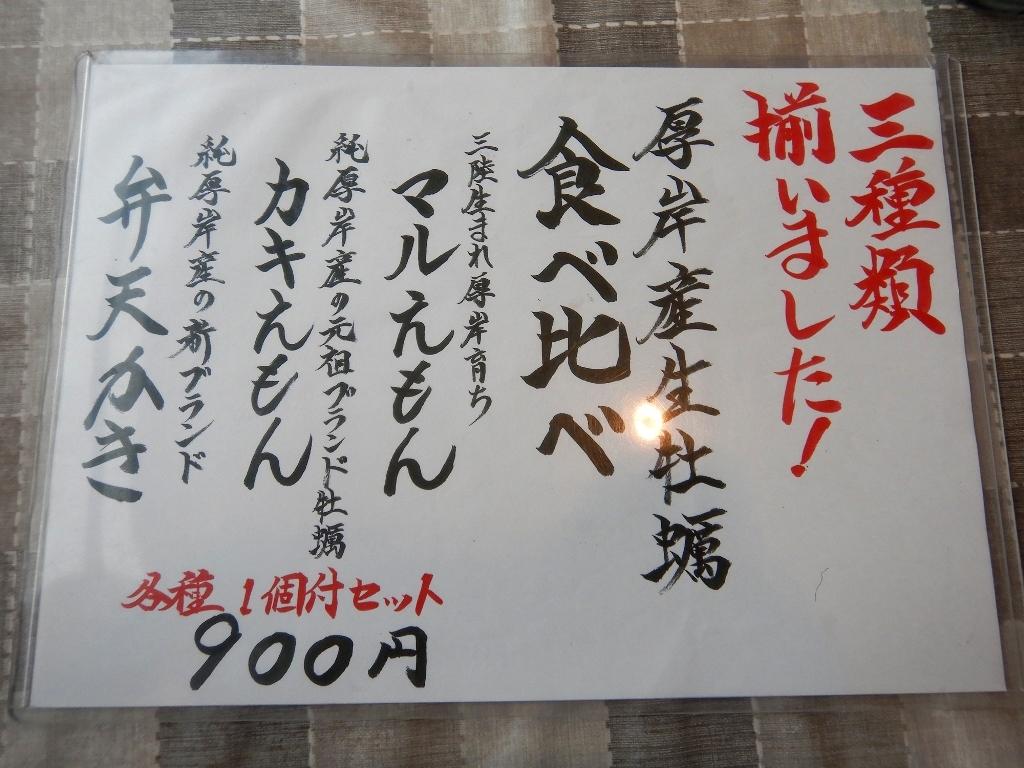 三種類
揃いました！
厚岸産生牡蠣
食べ比べ
三陸生まれ厚岸育ち
マルえもん
純厚岸産の元祖ブランド牡蠣
カキえもん
純厚岸産の新ブランド
弁天かき
各種1個付セット
900円